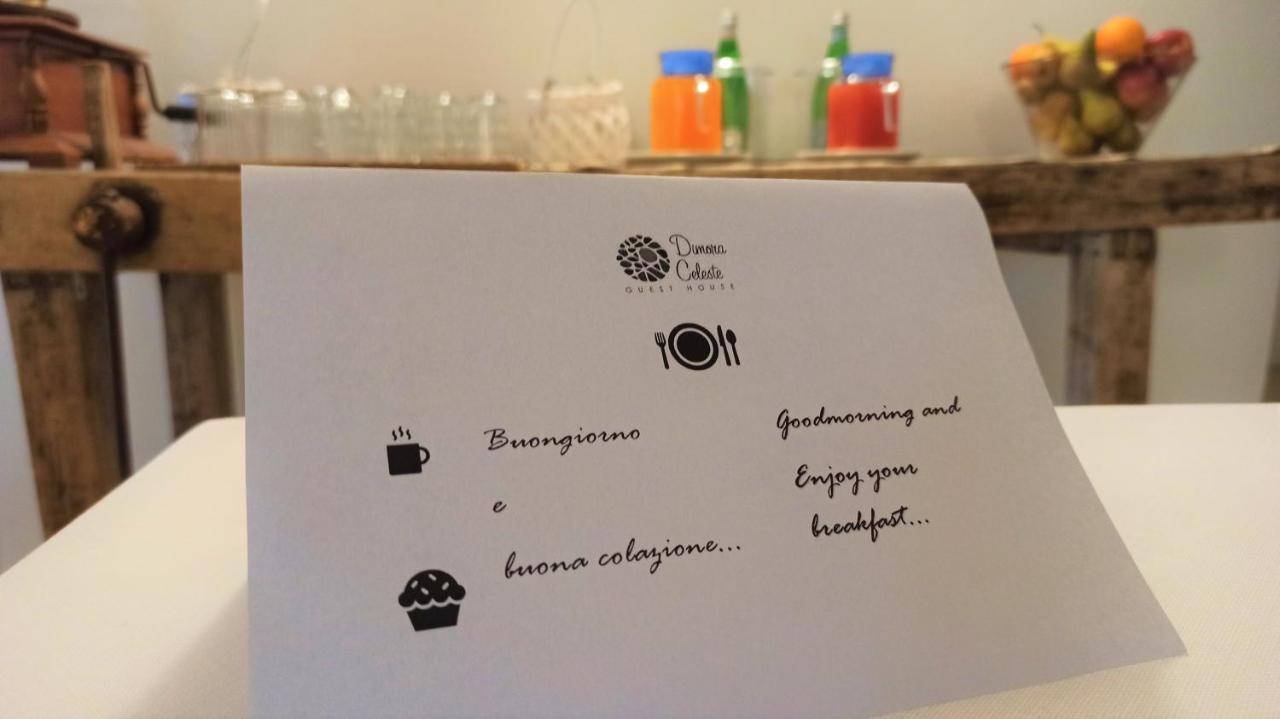 Dimora
Celeste
GUEST HOUSE
Buongiorno
e
buona colazione...
Goodmorning and
Enjoy your
breakfast...